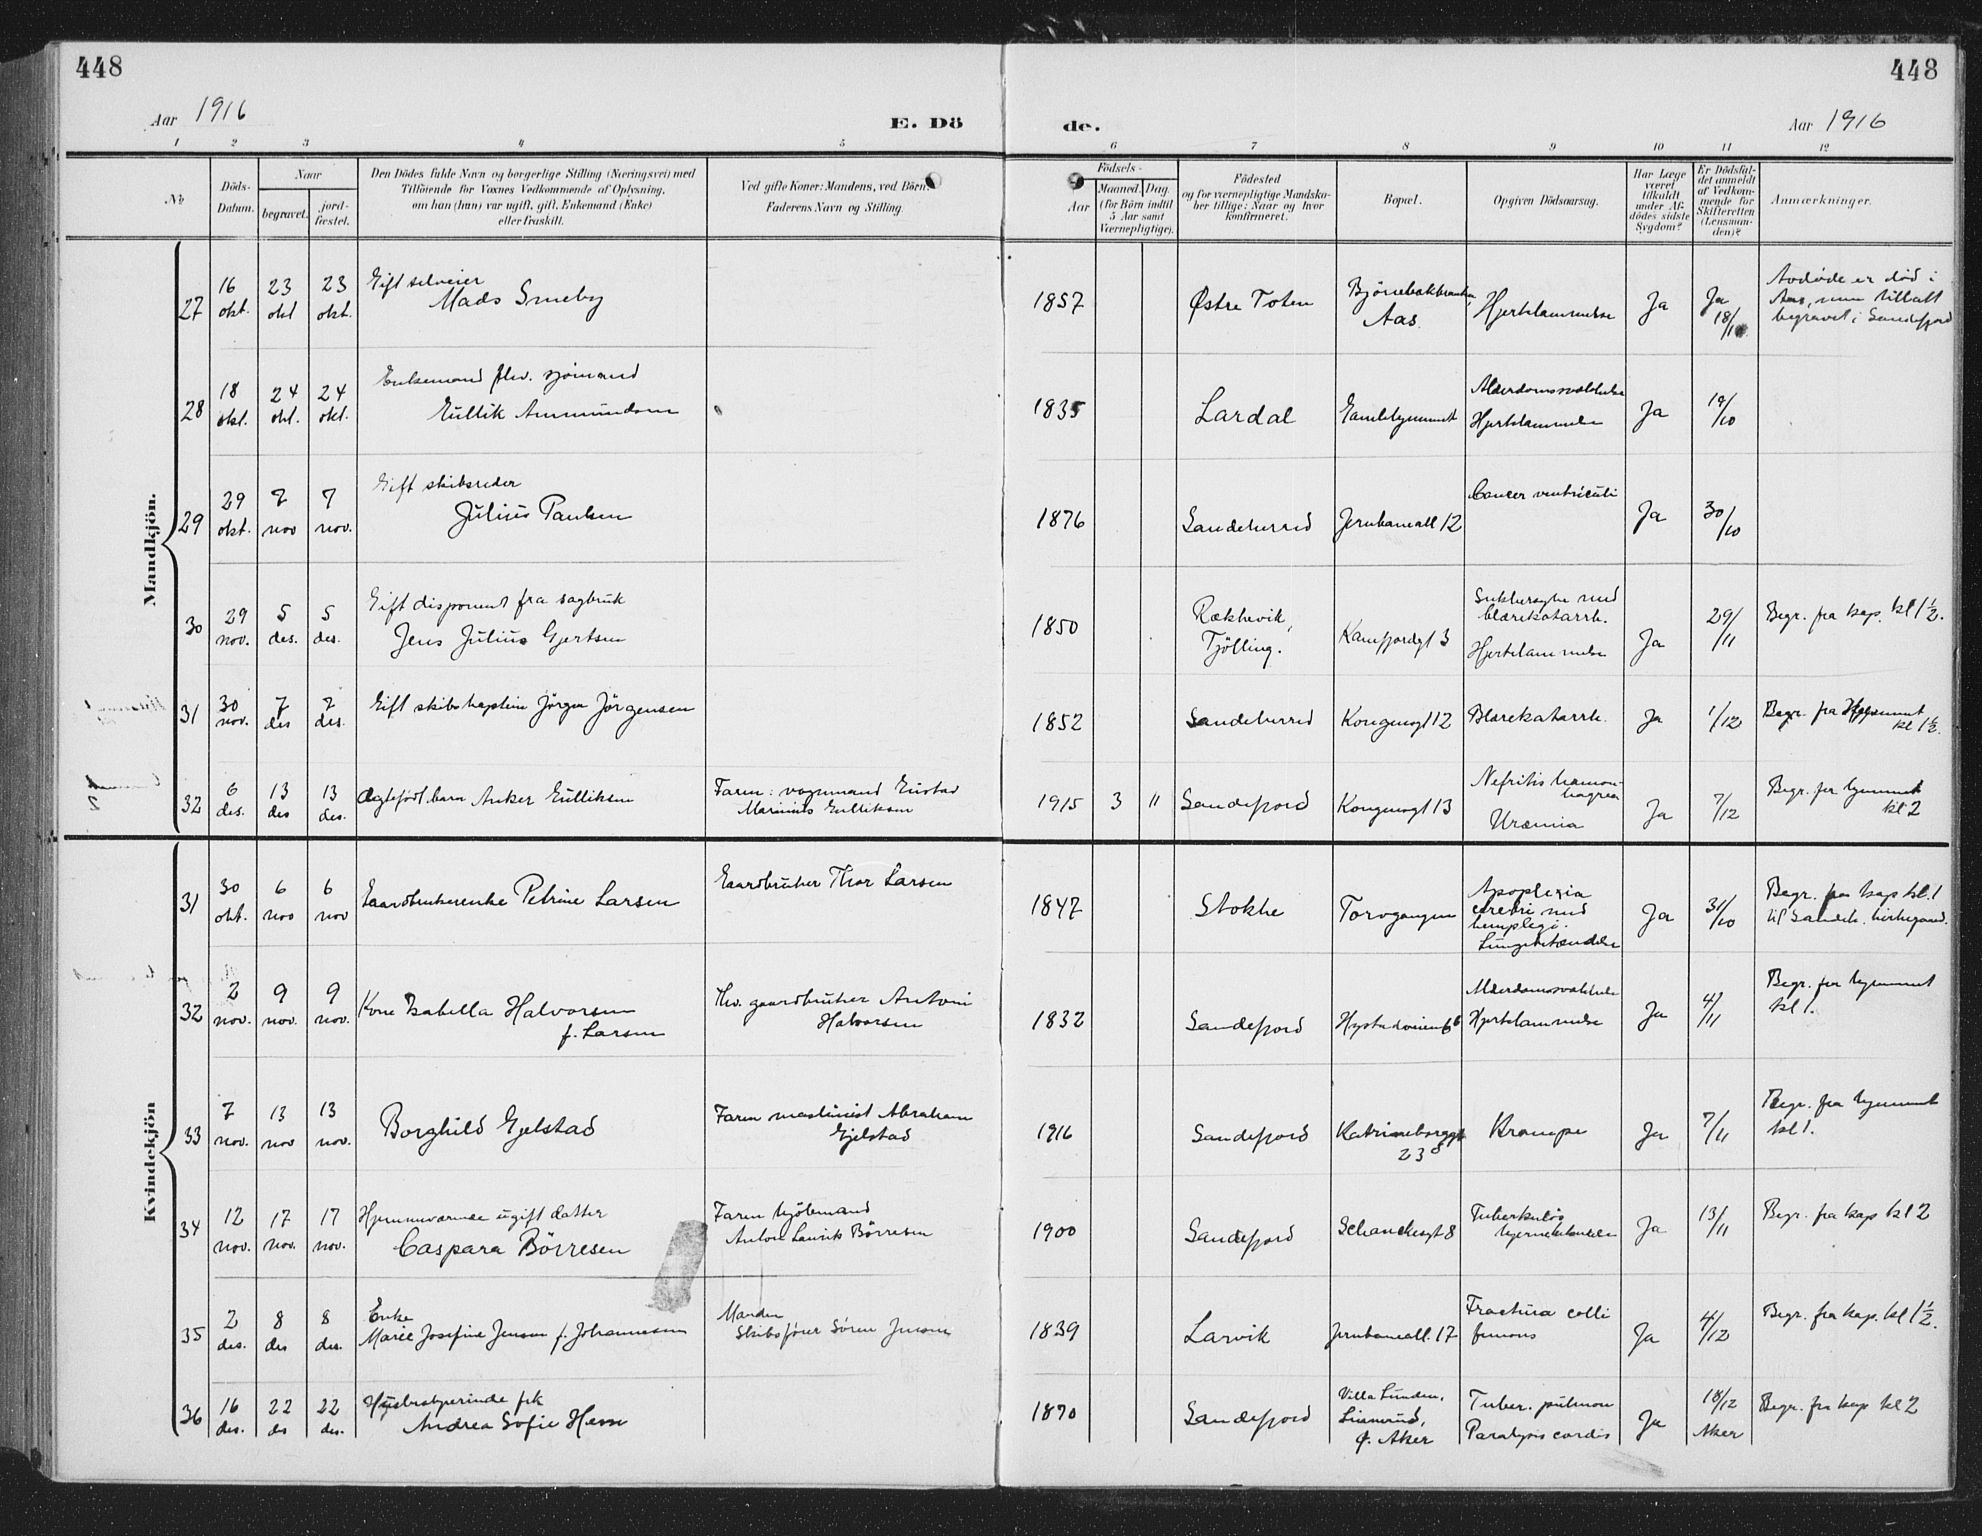 448
448
Aar 1916
E. Dö
de.
Aar 1916
1 2 3 4 5 6 7 8 9 10 11 12
No
Döds-
Datum.
Naar
begravet.
jord-
fæstet.
Den Dödes fulde Navn og borgerlige Stilling (Næringsvei) med
Tilföiende for Voxnes Vedkommende af Oplysning,
om han (hun) var ugift, gift, Enkemand (Enke)
eller fraskilt.
Ved gifte Koner: Mandens, ved Börn:
Faderens Navn og Stilling.
Födsels-
Aar
Maaned. Dag.
(for Börn indtil
5 Aar samt
Værnepligtige).
Födested
og for værnepligtige Mandska-
ber tillige: Naar og hvor
konfirmeret.
Bopæl.
Opgiven Dödsaarsag.
Har Læge
været
tilkaldt
under Af-
dödes sidste
Sygdom?
Er Dödsfal-
det anmeldt
af Vedkom-
mende for
Skifteretten
(Lensman-
den)?
Anmærkninger.
Mandkjön.
27 16 okt. 23 okt 23 okt. Gift selveier
Mads Smeby
1857 Østre Toten
Aas. Hjertelammelse Ja Ja 18/10
Avdøde er død i
Aas, men tillatt
begravet i Sandefjord
28 18 okt. 24 okt. 24 okt. Enkemand fhv. sjömand
Gullik Ammundsen
1835 Lardal Gamlehjemmet Alderdomssvakhelse
Hjertelammelse Ja 19/10
29 29 okt. 7 nov 7 nov. Gift skibsreder
Julius Paulsen
1876 Sandeherred Jernbaneall 12 Cancer ventriculi Ja 30/10
30 29 nov. 5 des. 5 des. Gift disponent fra sagbruk
Jens Julius Gjertsen
1850 Rækkevik,
Tjölling. Kamfjordgt 3 Sukkersyke med
blærekatarrh.
Hjertelammelse Ja 29/11 Begr. fra kap. kl 1½.
31 30 nov. 7 des 7 des. Gift skibskaptein Jörgen Jörgensen
1852 Sandeherred Kongensgt 12 Blærekatarrh. Ja 1/12 Begr. fra Hjemmet
kl 1½.
32 6 des. 13 des 13 des. Ægtefödt barn Anker Gulliksen Faren: vognmand Gustav
Marinius Gulliksen
1915 3 11 Sandefjord Kongensgt 13 Nefritis hæmor-
hagica
Uræmia Ja 7/12 Begr. fra hjemmet
kl 2
Kvindekjön
31 30 okt. 6 nov 6 nov Gaardbrukerenke Petrine Larsen Gaardbruker Thor Larsen
1847 Stokke Torvgangen Apoplexia
cerebri med
hemplegi.
Lungebetændelse Ja 31/10 Begr. fra kap kl. 1
til Sandeh. kirkegaard.
32 2 nov. 9 nov. 9 nov. Kone Isabella Halvorsen
f. Larsen fhv. gaardbruker Anton
Halvorsen
1832 Sandefjord Hystadveien 66 Alderdomssvakhelse
Hjertelammelse Ja 4/11 Begr. fra hjemmet
kl 1.
33 7 nov. 13 nov 13 nov. Borghild Gjelstad Faren maskinist Abraham
Gjelstad
1916 Sandefjord Katrineborggt
23 Krampe Ja 7/11 Begr. fra hjemmet
kl 1.
34 12 nov. 17 nov. 17 nov. Hjemmeværende ugift datter
Caspara Börresen Faren kjöbmand
Anton Laurits Börresen
1900 Sandefjord Schanchesgt 8 Tuberkulös
hjernebetændelse Ja 13/11 Begr. fra kap kl 2
35 2 des. 8 des 8 des. Enke
Marie Josefine Jensen f. Johannesen Manden
Skibsförer Sören Jensen
1839 Larvik Jernbaneall. 17 Fractura colli
femoris Ja 4/12 Begr. fra kap. kl 1½.
36 16 des. 22 des 22 des. Husbestyrerinde frk
Andrea Sofie Hem
1870 Sandefjord Villa Lunden,
Linnerud,
Ø. Aker Tuber. pulmon
Paralysis cordis Ja 18/12
Aker Begr. fra kap kl 2